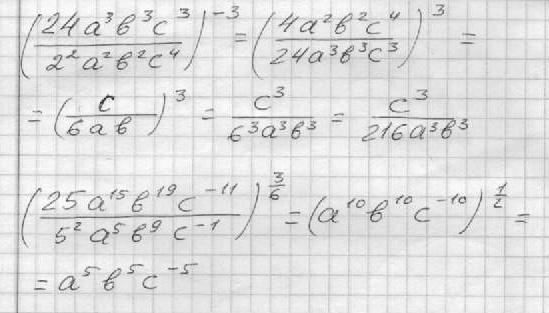 (24a³b³c³ / 2²a²b²c⁴)⁻³ = (4a²b²c⁴ / 24a³b³c³)³ =
= (c / 6ab)³ = c³ / 6³a³b³ = c³ / 216a³b³
(25a¹⁵b¹⁹c⁻¹¹ / 5²a⁵b⁹c⁻¹)^(3/6) = (a¹⁰b¹⁰c⁻¹⁰)^(1/2) =
= a⁵b⁵c⁻⁵